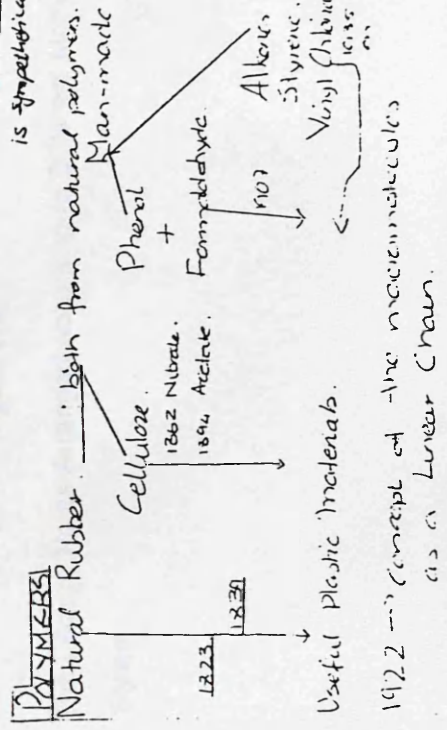 is
POLYMERS
Natural Rubber. both from natural polymers.
Man-made
Cellulose.
1862 Nitrate.
1894 Acetate.
Phenol
+
Formaldehyde.
1907
Alkenes
Styrene.
Vinyl Chloride
1823
1839
Useful Plastic Materials.
1922 → concept of the macromolecules
as a Linear Chain.